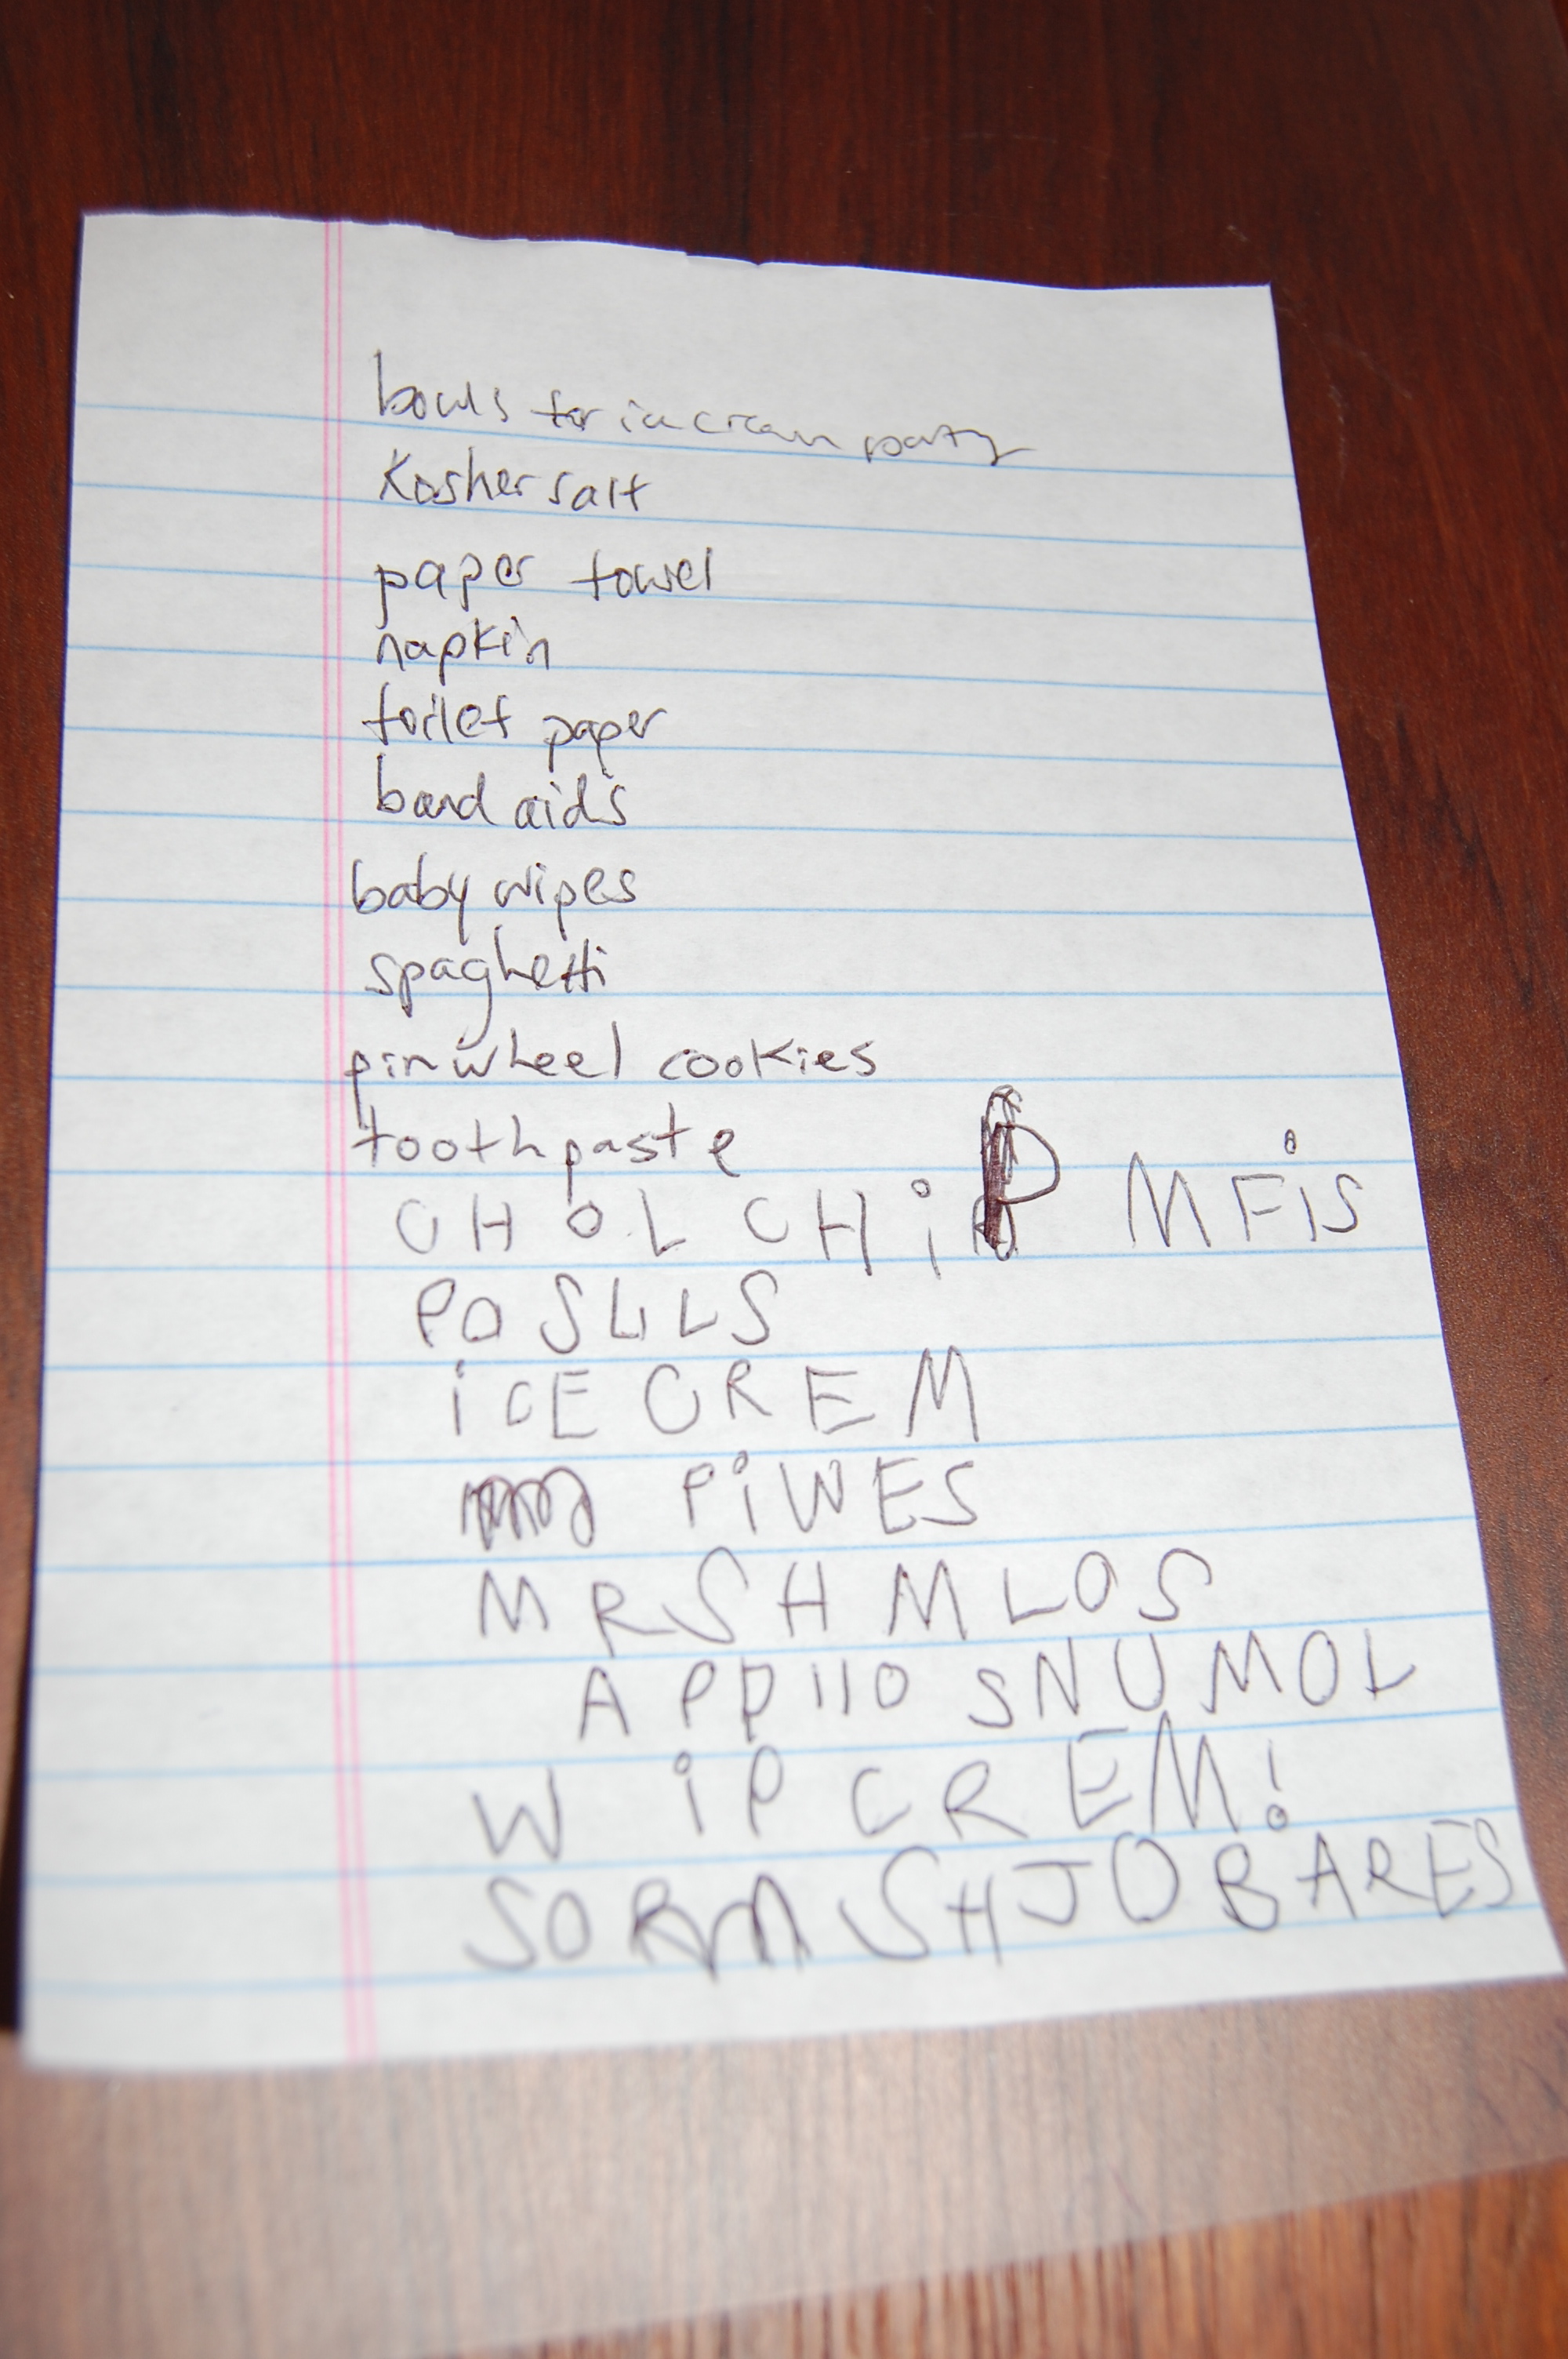 bowls for ice cream party
Kosher salt
paper towel
napkin
toilet paper
band aids
baby wipes
spaghetti
pinwheel cookies
toothpaste
CHOL CHiP MFiS
POSLLS
iCE CREM
PiWES
MRSHMLOS
APPllO SNUMOL
WiP CREM!
SORM SHJO BARES